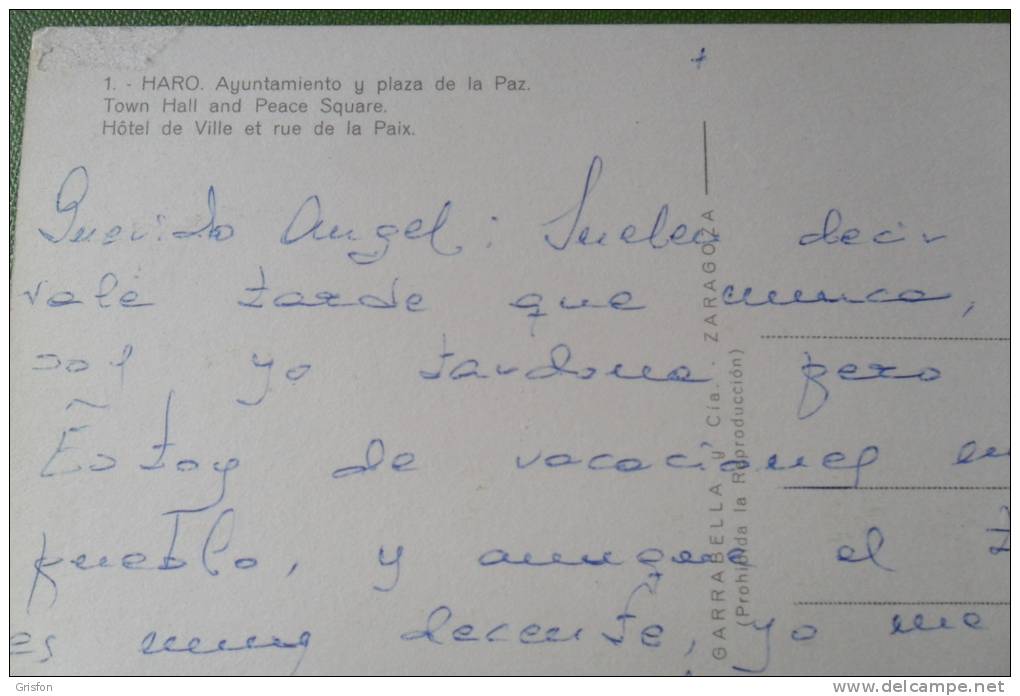 1. - HARO. Ayuntamiento y plaza de la Paz.
Town Hall and Peace Square.
Hôtel de Ville et rue de la Paix.
Querido Angel: Suelen decir
vale tarde que nunca,
yo tardona pero
Estoy de vacaciones en
pueblo, y aunque el
es muy decente, yo me
GARRABELLA y Cía. . ZARAGOZA
(Prohibida la Reproducción)
Grisfon
www.delcampe.net